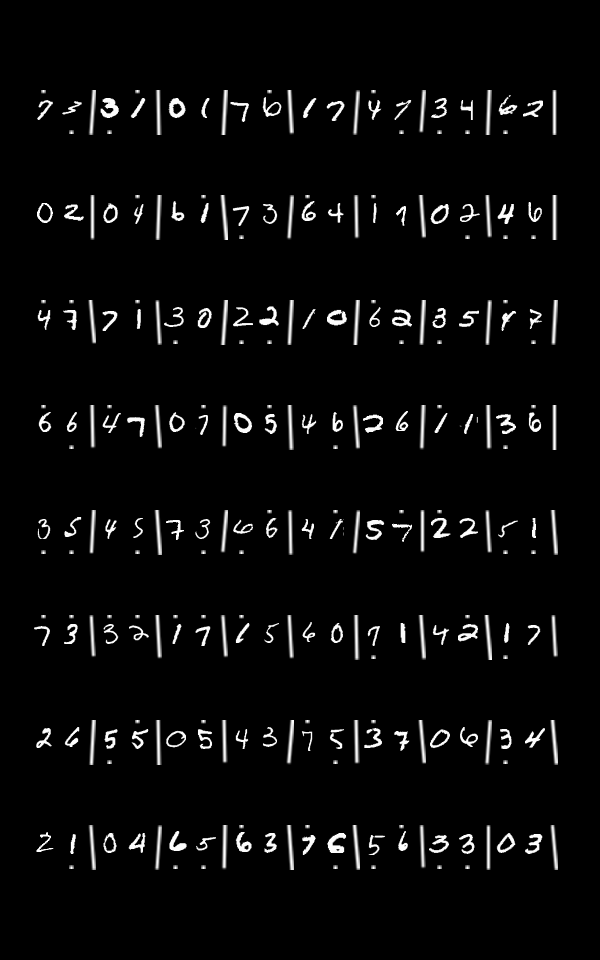 7 3 | 3 1 | 0 1 | 7 6 | 1 7 | 4 7 | 3 4 | 6 2 |
0 2 | 0 4 | 6 1 | 7 3 | 6 4 | 1 1 | 0 2 | 4 6 |
4 7 | 7 1 | 3 0 | 2 2 | 1 0 | 6 2 | 3 5 | 4 7 |
6 6 | 4 7 | 0 7 | 0 5 | 4 6 | 2 6 | 1 1 | 3 6 |
3 5 | 4 5 | 7 3 | 6 6 | 4 1 | 5 7 | 2 2 | 5 1 |
7 3 | 3 2 | 1 7 | 1 5 | 6 0 | 7 1 | 4 2 | 1 7 |
2 6 | 5 5 | 0 5 | 4 3 | 7 5 | 3 7 | 0 6 | 3 4 |
2 1 | 0 4 | 6 5 | 6 3 | 7 6 | 5 6 | 3 3 | 0 3 |